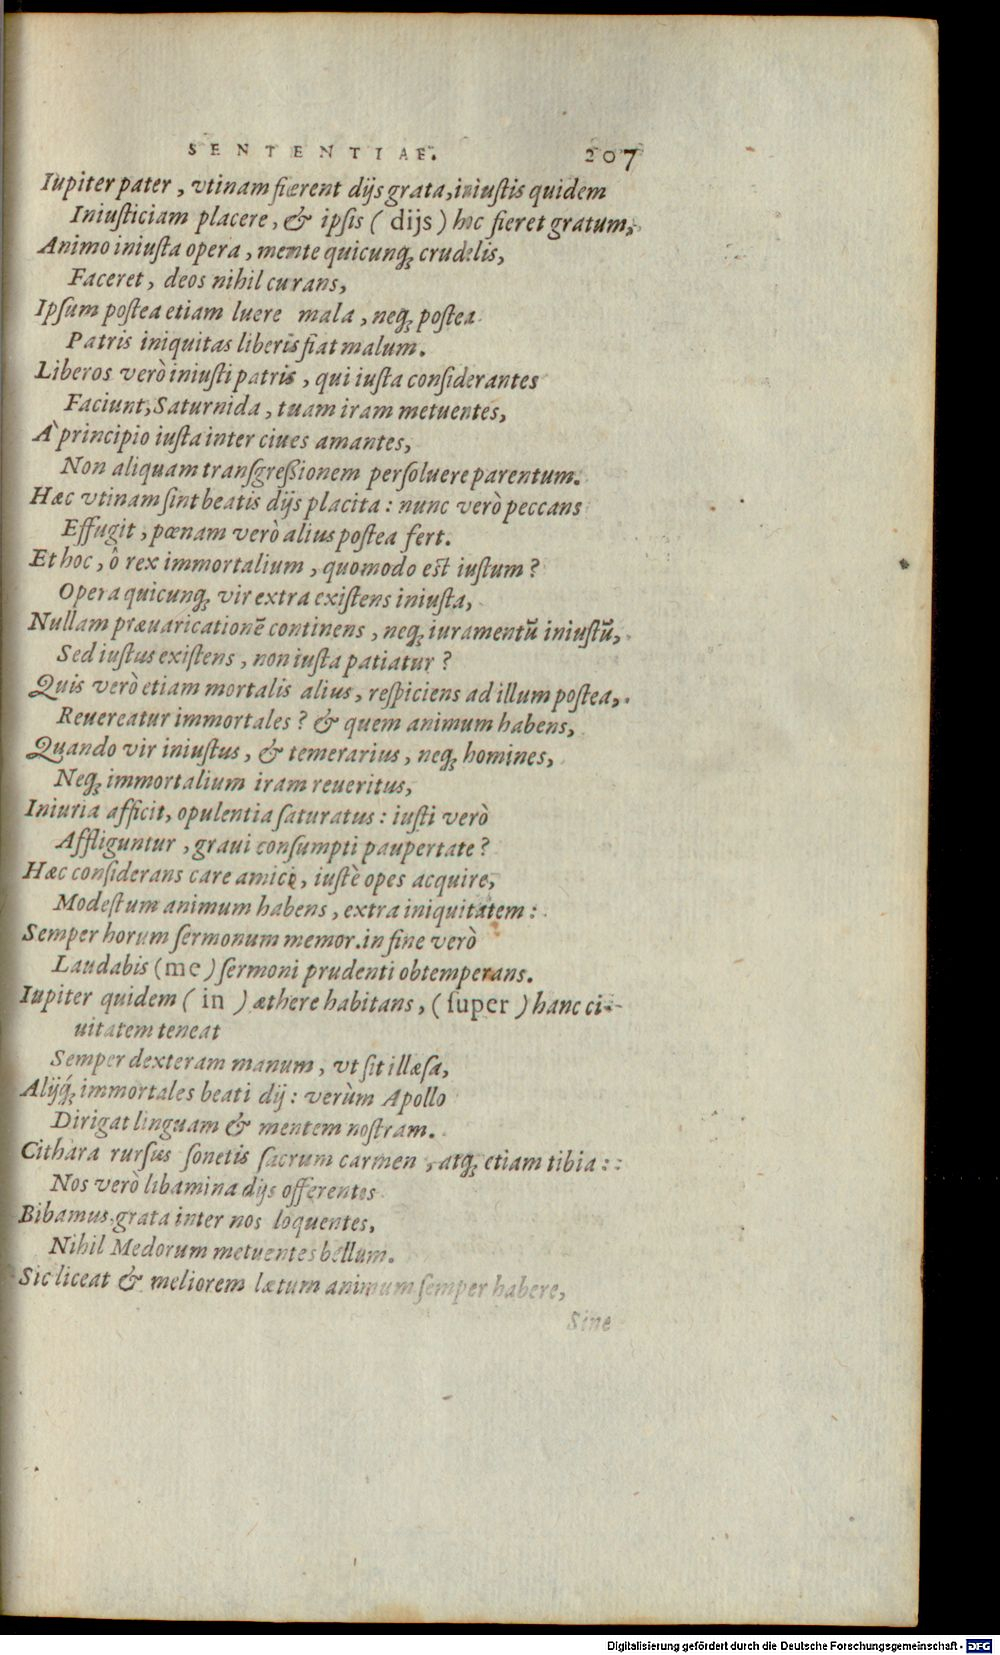 SENTENTIAE. 207
Iupiter pater, vtinam fierent dijs grata, iniustis quidem
Iniusticiam placere, & ipsis (dijs) hoc fieret gratum,
Animo iniusta opera, mente quicunq; crudelis,
Faceret, deos nihil curans,
Ipsum postea etiam luere mala, neq; postea
Patris iniquitas liberis fiat malum.
Liberos verò iniusti patris, qui iusta considerantes
Faciunt, Saturnida, tuam iram metuentes,
A`principio iusta inter ciues amantes,
Non aliquam transgreßionem persoluere parentum.
Hæc vtinam sint beatis dijs placita: nunc verò peccans
Effugit, pœnam verò alius postea fert.
Et hoc, ô rex immortalium, quomodo est iustum?
Opera quicunq; vir extra existens iniusta,
Nullam præuaricationē continens, neq; iuramentū iniustū,
Sed iustus existens, non iusta patiatur?
Quis verò etiam mortalis alius, respiciens ad illum postea,
Reuereatur immortales? & quem animum habens,
Quando vir iniustus, & temerarius, neq; homines,
Neq; immortalium iram reueritus,
Iniuria afficit, opulentia saturatus: iusti verò
Affliguntur, graui consumpti paupertate?
Hæc considerans care amice, iustè opes acquire,
Modestum animum habens, extra iniquitatem:
Semper horum sermonum memor. in fine verò
Laudabis (me) sermoni prudenti obtemperans.
Iupiter quidem (in) æthere habitans, (super) hanc ci-
uitatem teneat
Semper dexteram manum, vt sit illæsa,
Alijq́; immortales beati dij: verùm Apollo
Dirigat linguam & mentem nostram.
Cithara rursus sonetis sacrum carmen, atq; etiam tibia:
Nos verò libamina dijs offerentes
Bibamus, grata inter nos loquentes,
Nihil Medorum metuentes bellum.
Sic liceat & meliorem lætum animum semper habere,
Sine
Digitalisierung gefördert durch die Deutsche Forschungsgemeinschaft - DFG